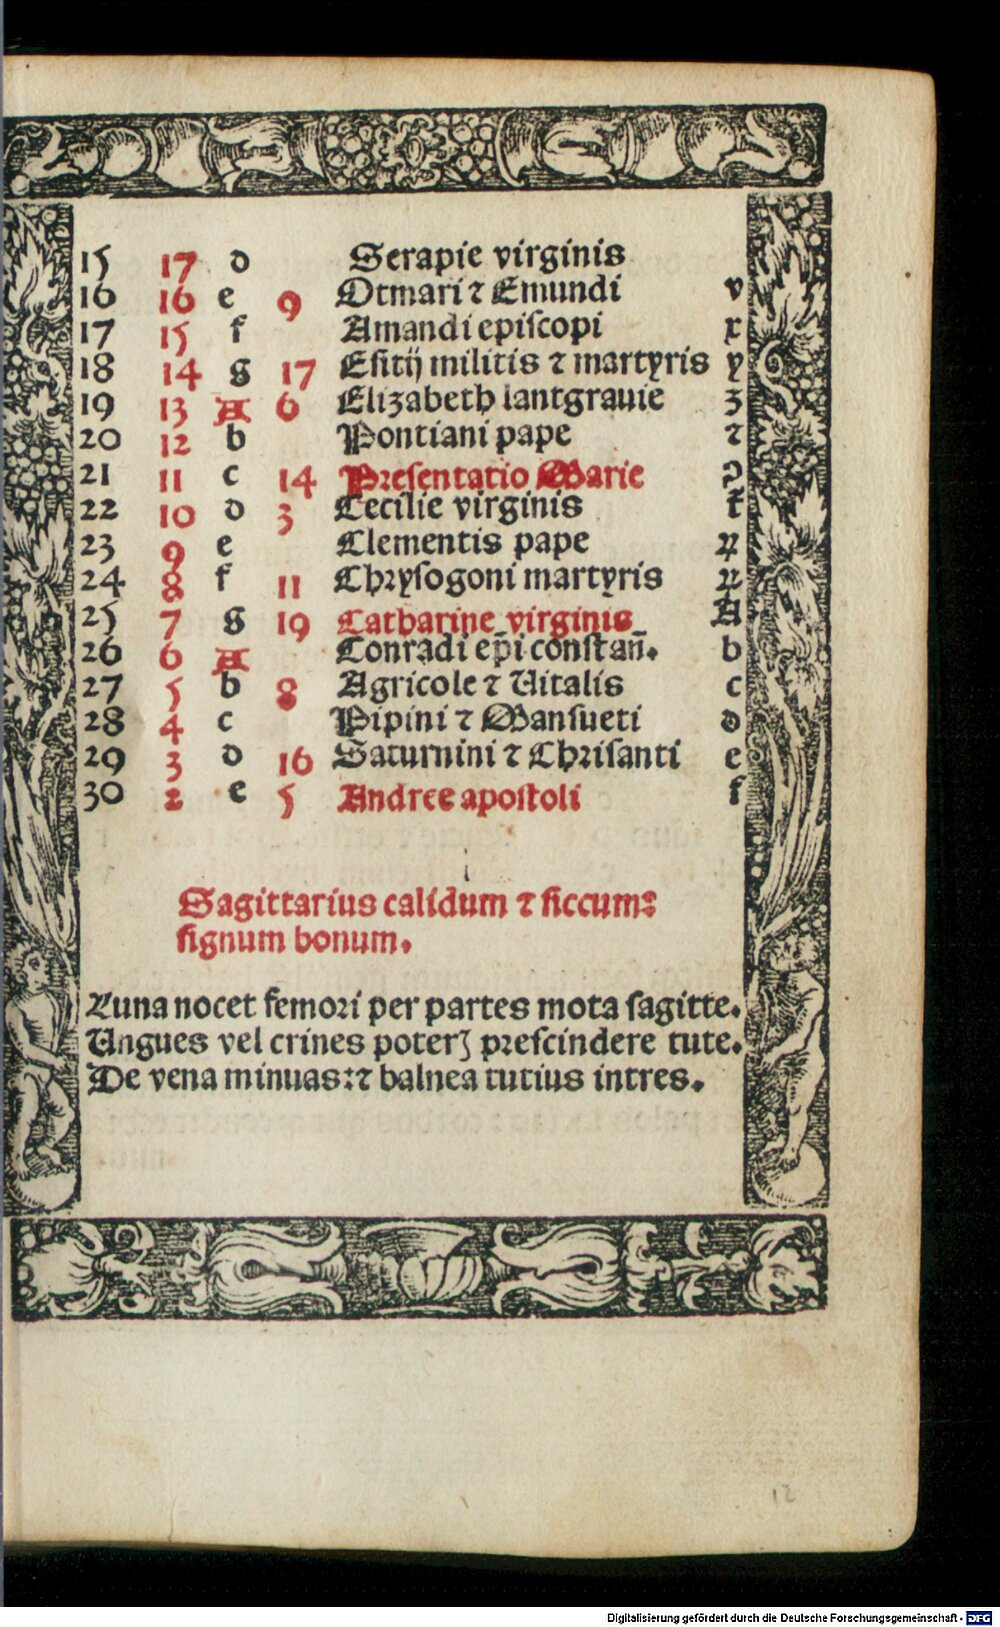 15 17 d Serapie virginis
16 16 e 9 Otmari ⁊ Emundi v
17 15 f Amandi episcopi x
18 14 g 17 Esitij militis ⁊ martyris y
19 13 A 6 Elizabeth lantgrauie z
20 12 b Pontiani pape ⁊
21 11 c 14 Presentatio Marie ꝯ
22 10 d 3 Cecilie virginis
23 9 e Clementis pape
24 8 f 11 Chrysogoni martyris
25 7 g 19 Catharine virginis A
26 6 A Conradi ep̄i constan̄. b
27 5 b 8 Agricole ⁊ Uitalis c
28 4 c Pipini ⁊ Mansueti d
29 3 d 16 Saturnini ⁊ Chrisanti e
30 2 e 5 Andree apostoli f
Sagittarius calidum ⁊ siccum:
signum bonum.
Luna nocet femori per partes mota sagitte.
Ungues vel crines poterꝭ prescindere tute.
De vena minuas: ⁊ balnea tutius intres.
12
Digitalisierung gefördert durch die Deutsche Forschungsgemeinschaft - DFG